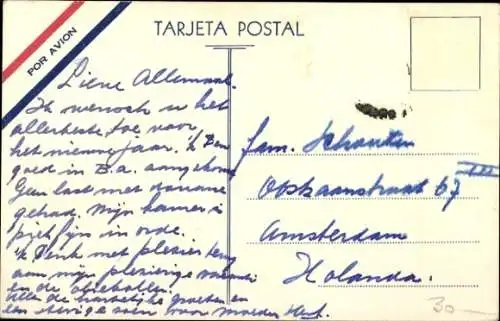 POR AVION
TARJETA POSTAL
Lieve Allemaal.
Ik wensch u het
allerbeste toe voor
het nieuwe jaar. 'k Ben
goed in B.a. aangekomen
Geen last met douane
gehad. Mijn kamer is
piek fijn in orde.
'k Denk met plezier terug
aan mijn plezierige vacantie
en de oliebollen.
Alle de hartelijke groeten en
een stevige zoen voor moeder
fam. Schouten
67 III
Amsterdam
Holanda.
30-